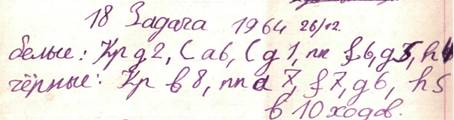 18 Задача 1964 26/02.
белые: Кр g2, С a6, С g1, пп f6, g5, h4
чёрные: Кр b8, пп d7, f7, g6, h5
в 10 ходов.